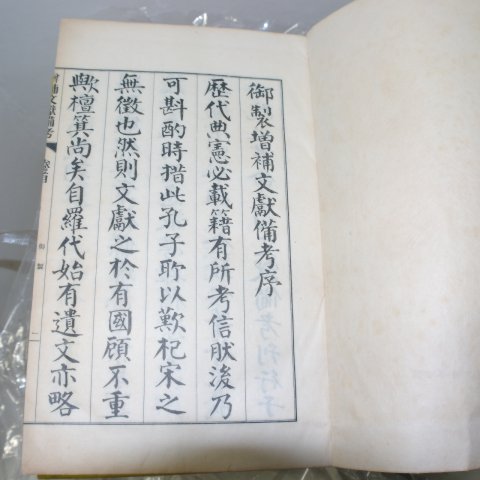 御製增補文獻備考序
歷代典憲必載籍有所考信肰後乃
可斟酌時措此孔子所以歎杞宋之
無徵也然則文獻之於有國顧不重
歟檀箕尚矣自羅代始有遺文亦略
增補文獻備考
御製